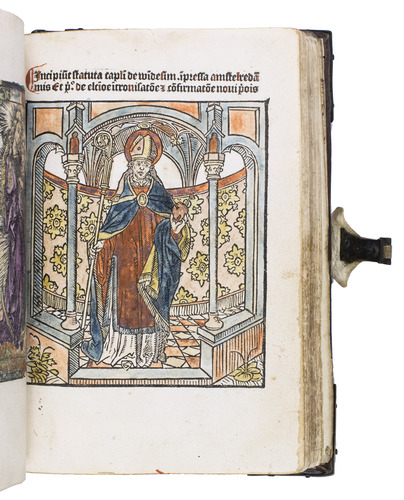 Incipiũt statuta capłi de wĩdesim. ĩpressa amstelredã
mis Et pº. de elcõe ĩtronisatõe ⁊ cõfirmatõe noui põis